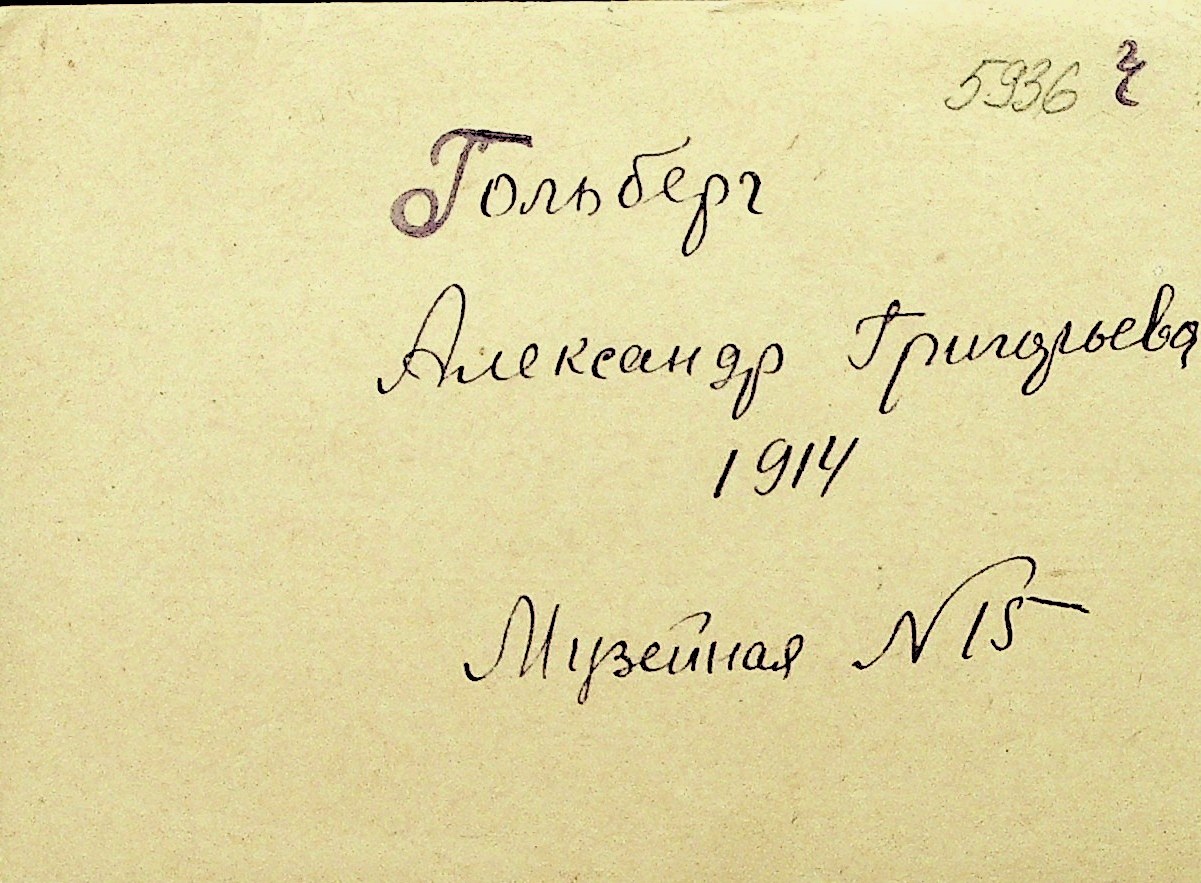 5936 г
Гольберг
Александр Григорьева
1914
Музейная N 15